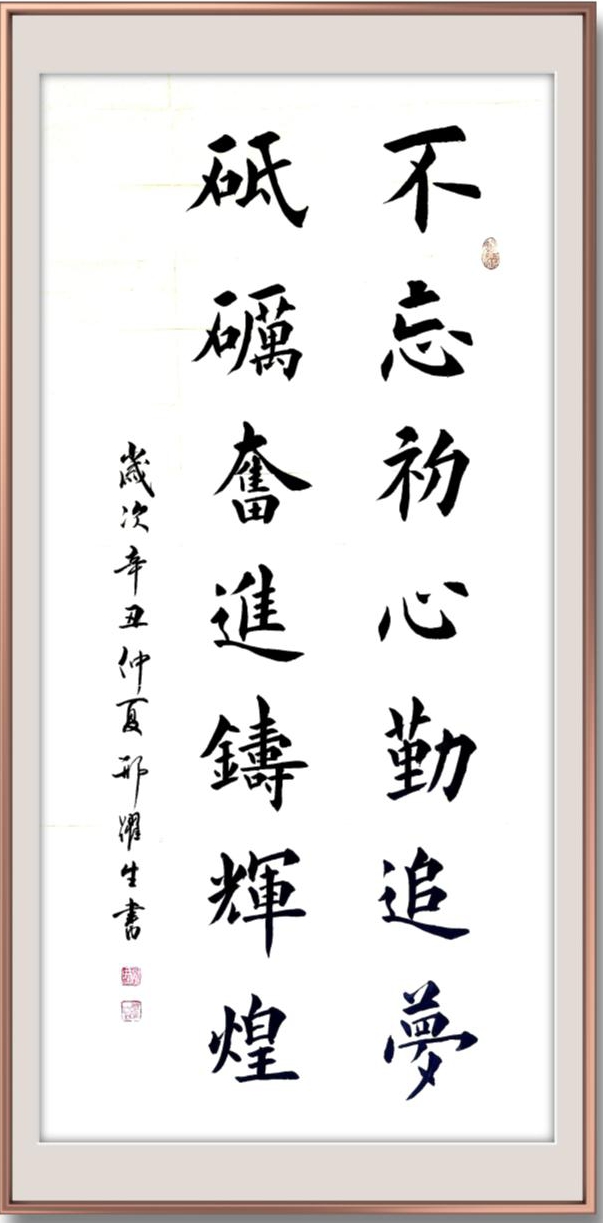 不忘初心勤追夢
砥礪奮進鑄輝煌
歲次辛丑仲夏邢耀生書